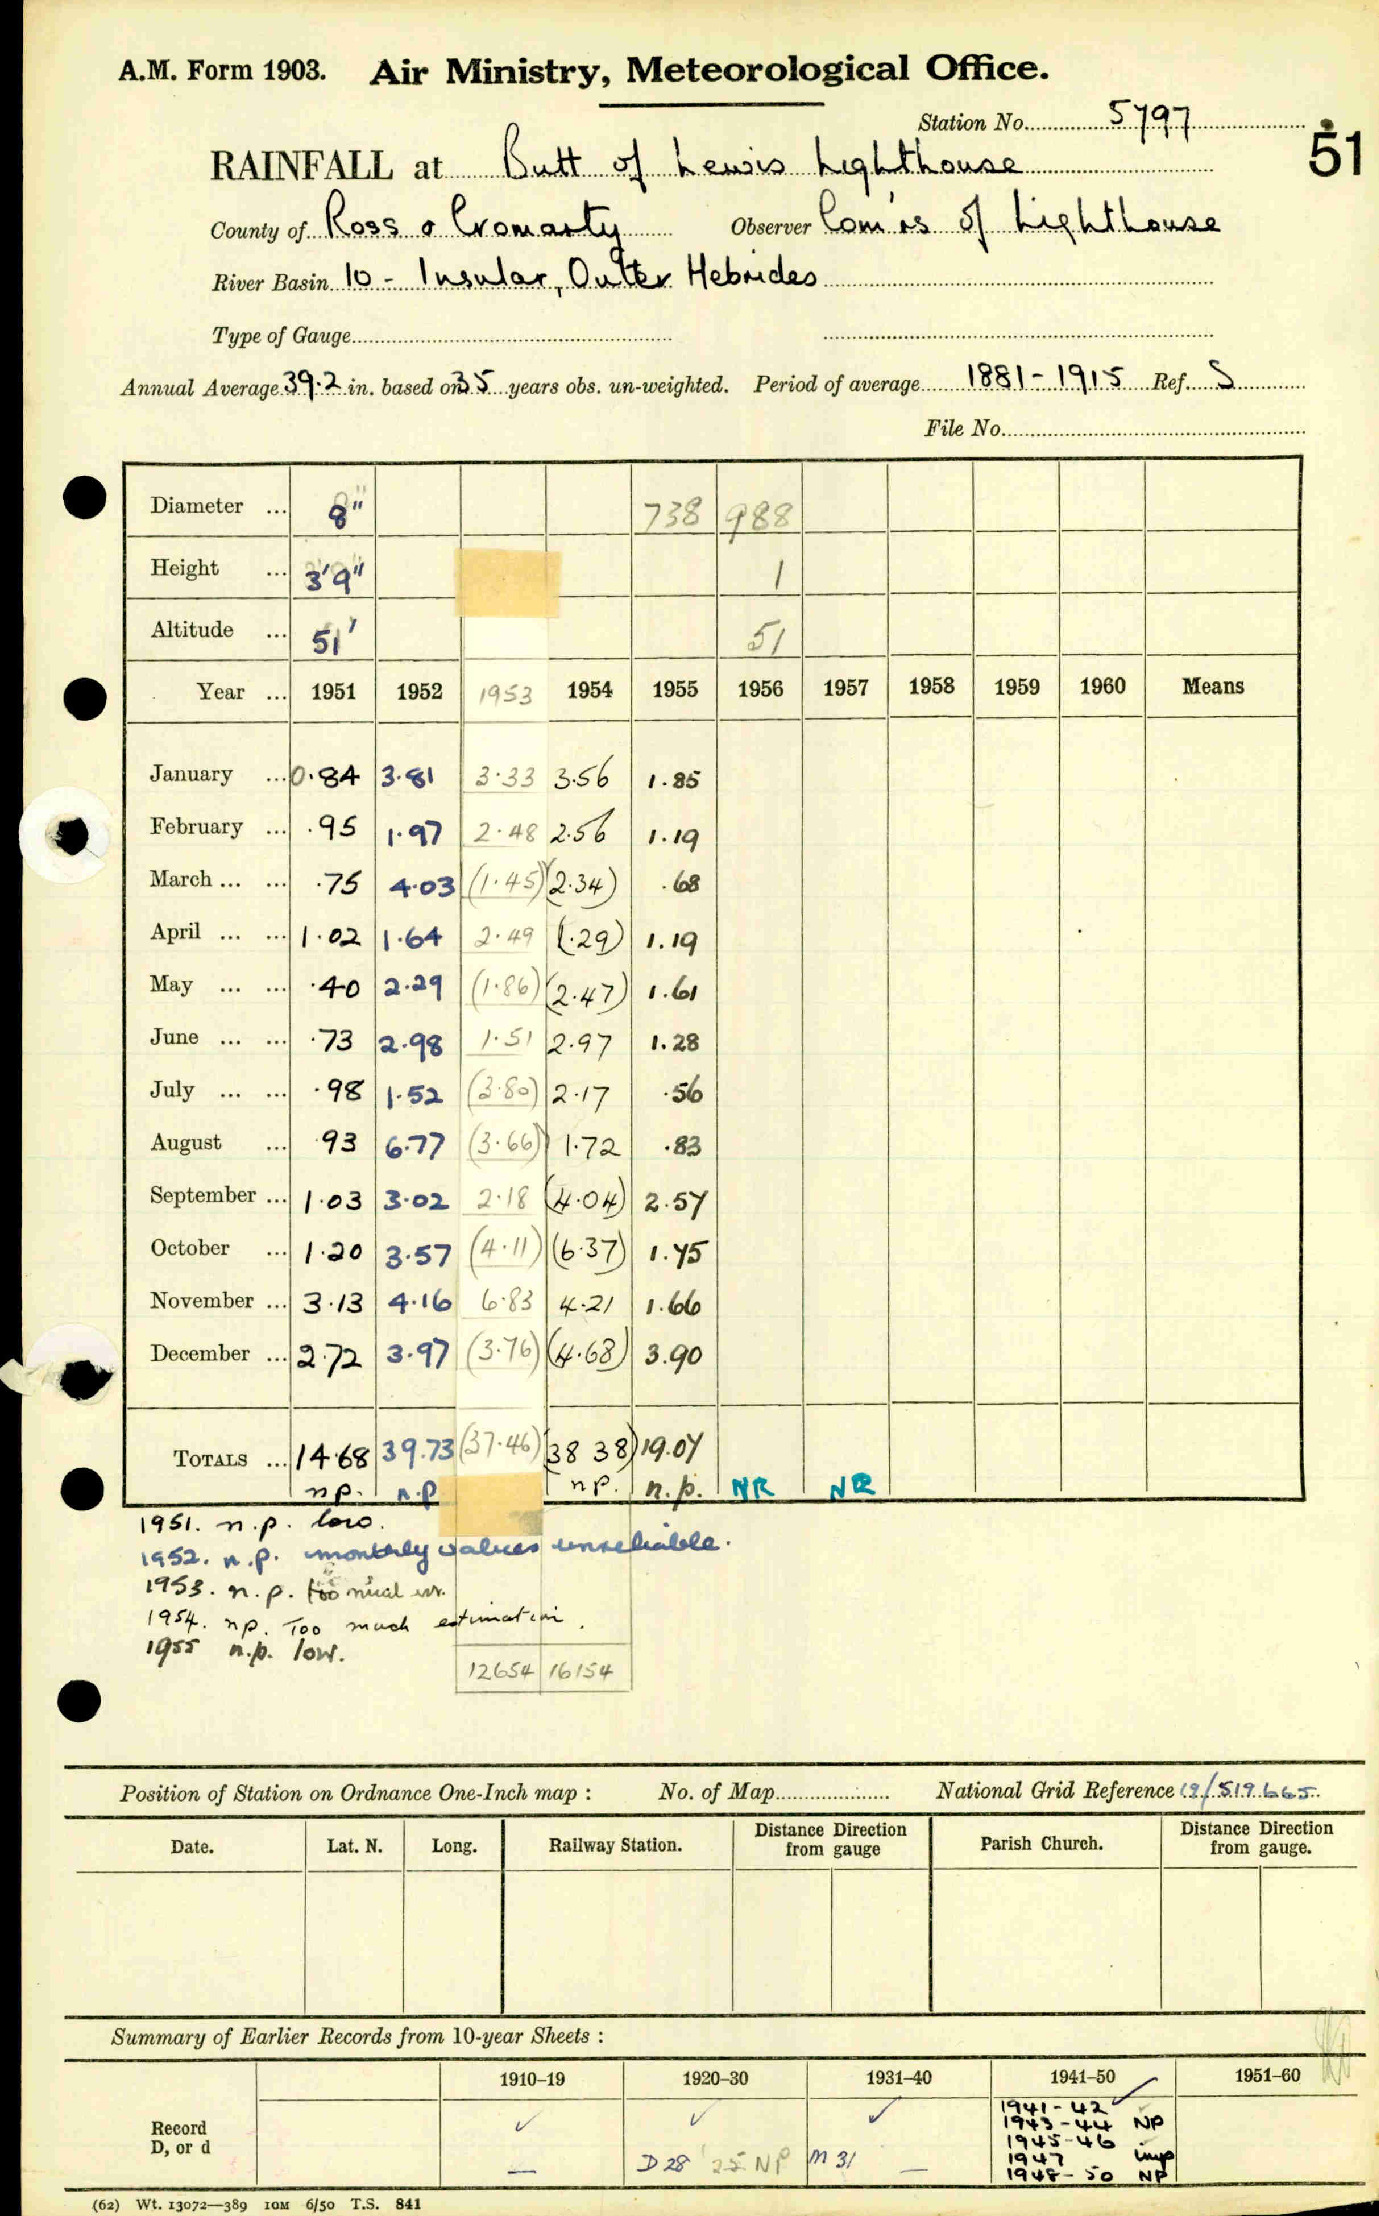 A.M. Form 1903. Air Ministry, Meteorological Office.
Station No. 5797
51
RAINFALL at Butt of Lewis Lighthouse
County of Ross & Cromarty Observer Com'rs of Lighthouse
River Basin 10 - Insular, Outer Hebrides
Type of Gauge
Annual Average 39.2 in. based on 35 years obs. un-weighted. Period of average 1881-1915 Ref. S
File No.
Diameter ... 8" 738 988
Height ... 3'9" 1
Altitude ... 51' 51
Year ... 1951 1952 1953 1954 1955 1956 1957 1958 1959 1960 Means
January ... 0.84 3.81 3.33 3.56 1.85
February ... .95 1.97 2.48 2.56 1.19
March ... ... .75 4.03 (1.45) (2.34) .68
April ... ... 1.02 1.64 2.49 (1.29) 1.19
May ... ... .40 2.29 (1.86) (2.47) 1.61
June ... ... .73 2.98 1.51 2.97 1.28
July ... ... .98 1.52 (3.80) 2.17 .56
August ... .93 6.77 (3.66) 1.72 .83
September ... 1.03 3.02 2.18 (4.04) 2.57
October ... 1.20 3.57 (4.11) (6.37) 1.75
November ... 3.13 4.16 6.83 4.21 1.66
December ... 2.72 3.97 (3.76) (4.68) 3.90
TOTALS ... 14.68 39.73 (37.46) (38 38) 19.07
n.p. n.p np. n.p. NR NR
1951. n.p. low.
1952. n.p. monthly values unreliable.
1953. n.p. too
1954. np. Too much estimation.
1955 n.p. low.
12654 16154
Position of Station on Ordnance One-Inch map : No. of Map National Grid Reference 19/519.665
Date. Lat. N. Long. Railway Station. Distance Direction from gauge Parish Church. Distance Direction from gauge.
Summary of Earlier Records from 10-year Sheets :
1910–19 1920–30 1931–40 1941–50 1951–60
Record
D, or d
✓ ✓ ✓ ✓
— D 28 '25 NP M 31 —
1941-42
1943-44 NP
1945-46
1947 imp
1948-50 NP
(62) Wt. 13072—389 10M 6/50 T.S. 841